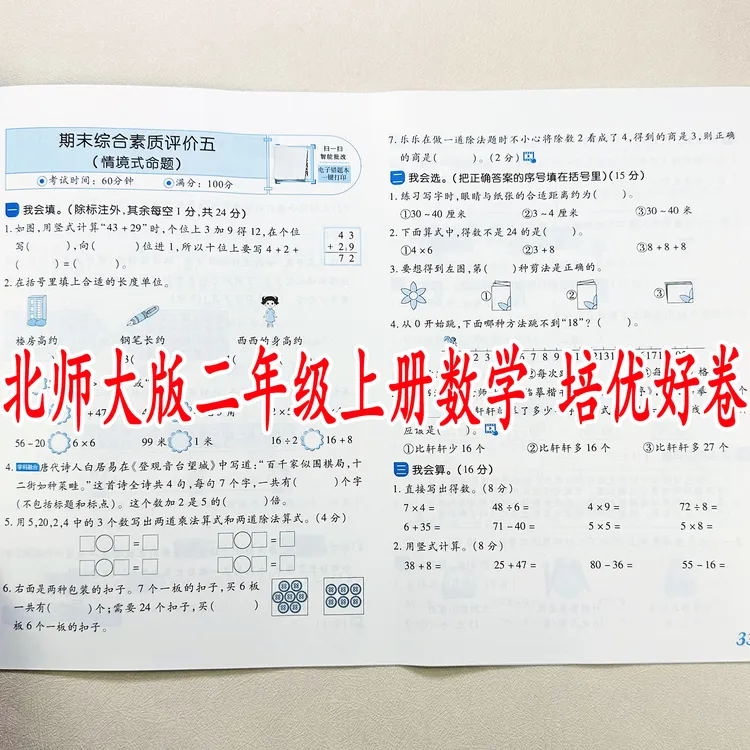 期末综合素质评价五
(情境式命题)
考试时间:60分钟 满分:100分
扫一扫
智能批改
电子错题本
一键打印
一 我会填。(除标注外,其余每空1分,共24分)
1.如图,用竖式计算“43+29”时,个位上3加9得12,在个位
写( ),向( )位进1,所以十位上要写4+2+
( )=( )。
4 3
+ 2 9
7 2
2.在括号里填上合适的长度单位。
楼房高约 钢笔长约 西西的身高约
北师大版二年级上册数学 培优好卷
56-20 6×6 99米 1米 16÷2 16+8
4.学科融合 唐代诗人白居易在《登观音台望城》中写道:“百千家似围棋局,十
二街如种菜畦。”这首诗全诗共4句,每句7个字,一共有( )个字
(不包括标题和标点)。这个数加2是5的( )倍。
5.用5,20,2,4中的3个数写出两道乘法算式和两道除法算式。(4分)
□○□=□ □○□=□
□○□=□ □○□=□
6.右面是两种包装的扣子。7个一板的扣子,买6板
一共有( )个;需要24个扣子,买( )
板6个一板的扣子。
7.乐乐在做一道除法题时不小心将除数2看成了4,得到的商是3,则正确
的商是( )。(2分)
二 我会选。(把正确答案的序号填在括号里)(15分)
1.练习写字时,眼睛与纸张的合适距离约为( )。
①30~40厘米 ②3~4厘米 ③30~40米
2.下面算式中,得数不是24的是( )。
①4×6 ②3+8 ③8+8+8
3.要想得到左图,第( )种剪法是正确的。
① ② ③
4.从0开始跳,下面哪种方法跳不到“18”?( )。
①比轩轩少16个 ②比轩轩多16个 ③比轩轩多27个
三 我会算。(16分)
1.直接写出得数。(8分)
7×4= 48÷6= 4×9= 72÷8=
6+35= 71-40= 5×5= 5×8=
2.用竖式计算。(8分)
38+8= 25+47= 80-36= 55-16=